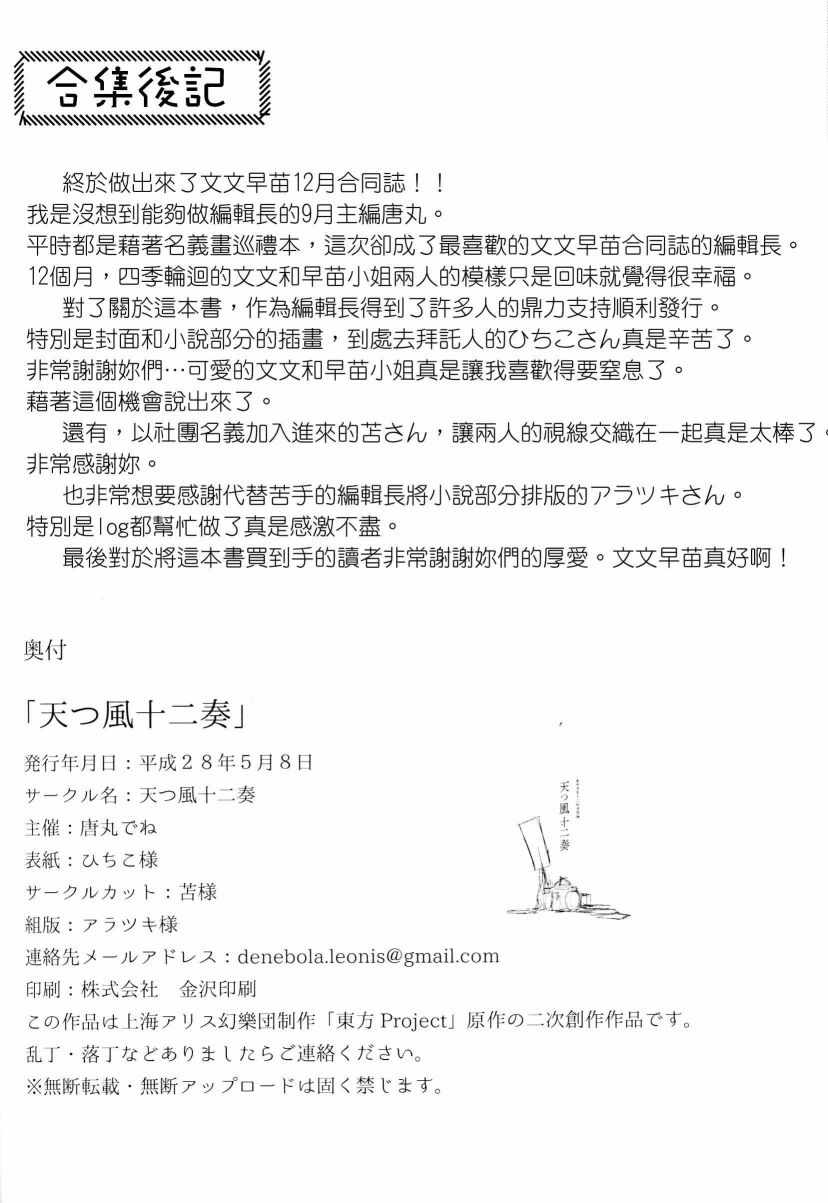 合集後記
終於做出來了文文早苗12月合同誌！！
我是沒想到能夠做編輯長的9月主編唐丸。
平時都是藉著名義畫巡禮本，這次卻成了最喜歡的文文早苗合同誌的編輯長。
12個月，四季輪迴的文文和早苗小姐兩人的模樣只是回味就覺得很幸福。
對了關於這本書，作為編輯長得到了許多人的鼎力支持順利發行。
特別是封面和小說部分的插畫，到處去拜託人的ひちこさん真是辛苦了。
非常謝謝妳們…可愛的文文和早苗小姐真是讓我喜歡得要窒息了。
藉著這個機會說出來了。
還有，以社團名義加入進來的苦さん，讓兩人的視線交織在一起真是太棒了。
非常感謝妳。
也非常想要感謝代替苦手的編輯長將小說部分排版的アラツキさん。
特別是log都幫忙做了真是感激不盡。
最後對於將這本書買到手的讀者非常謝謝妳們的厚愛。文文早苗真好啊！
奥付
「天つ風十二奏」
発行年月日：平成２８年５月８日
サークル名：天つ風十二奏
主催：唐丸でね
表紙：ひちこ様
サークルカット：苫様
組版：アラツキ様
連絡先メールアドレス：denebola.leonis@gmail.com
印刷：株式会社　金沢印刷
この作品は上海アリス幻樂団制作「東方 Project」原作の二次創作作品です。
乱丁・落丁などありましたらご連絡ください。
※無断転載・無断アップロードは固く禁じます。
天つ風十二奏